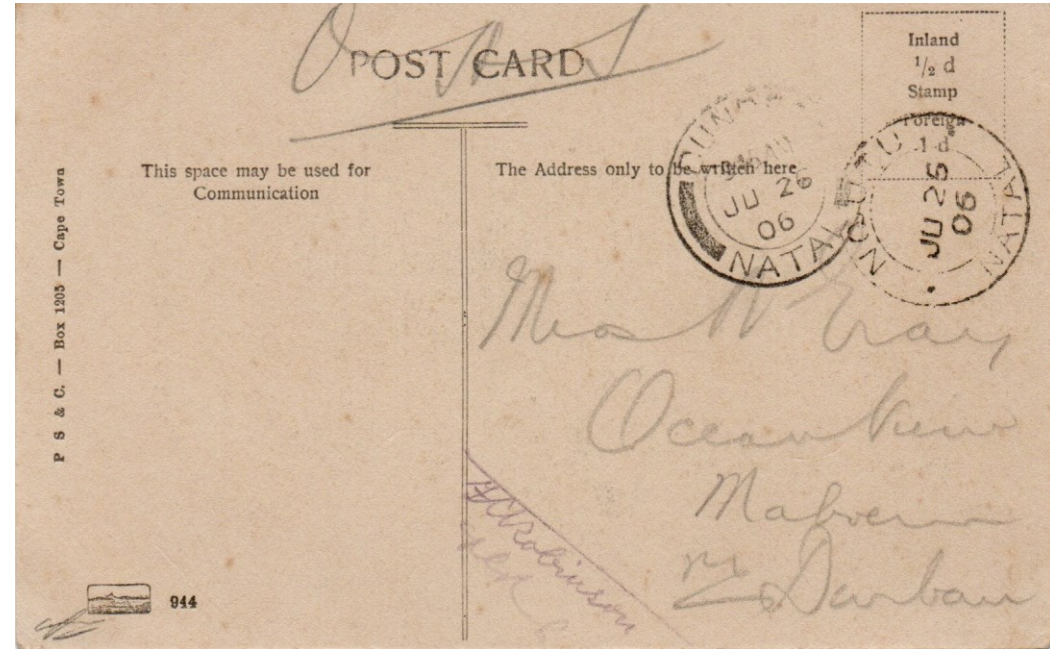 O H S
POST CARD
Inland
1/2 d
Stamp
Foreign
1 d
This space may be used for
Communication
The Address only to be written here
DUN
JU 26
06
NATAL
NQUTU
JU 25
06
NATAL
P S & C. — Box 1205 — Cape Town
Miss W Gray
Ocean View
Malvern
Nr Durban
Robinson
944